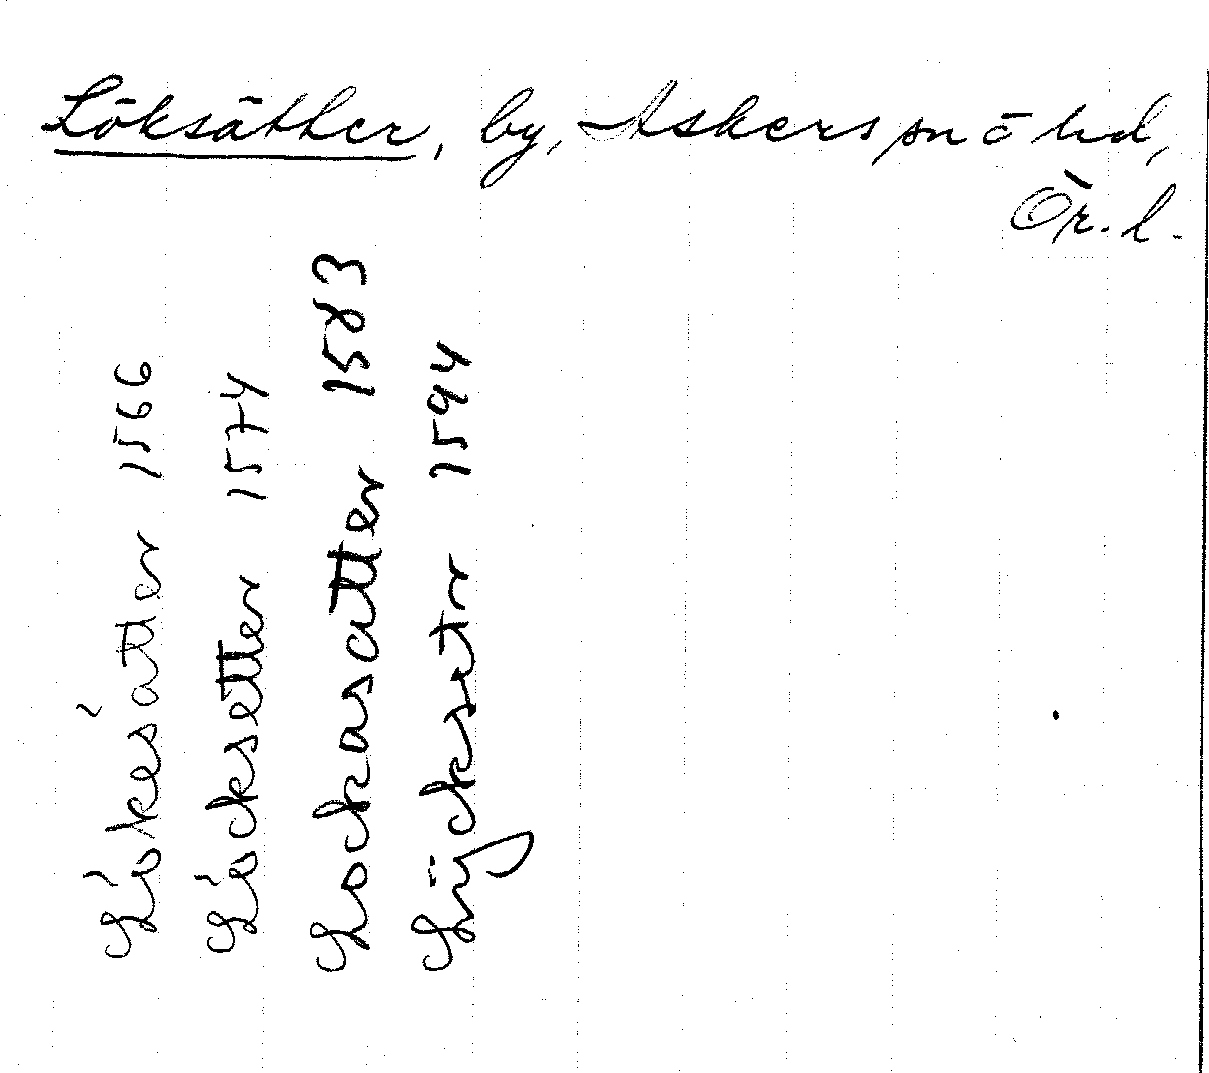 Löksätter, by, Askers sn o hd,
Ör. l.
Lökesätter 1566
Löcksetter 1574
Lockasatter 1583
Lÿcksetr 1594